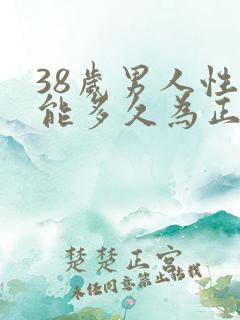 38歲男人性
能多久為正
楚楚正宮
未经同意禁止转载